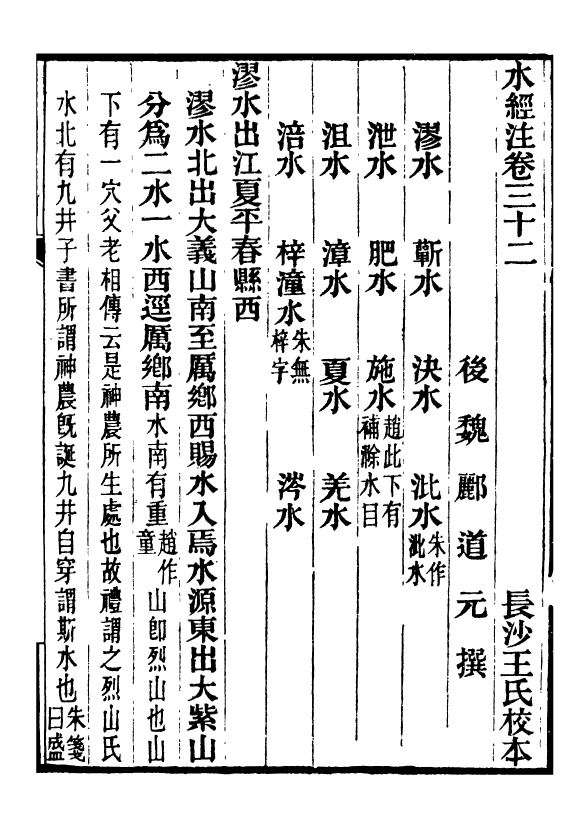 水經注卷三十二　長沙王氏校本
後魏酈道元撰
漻水　蘄水　決水　沘水朱作淝水
泄水　肥水　施水趙此下有補滁水目
沮水　漳水　夏水　羌水
涪水　梓潼水朱無梓字　涔水
漻水出江夏平春縣西
漻水北出大義山南至厲鄉西賜水入焉水源東出大紫山
分爲二水一水西逕厲鄉南水南有重趙作童山卽烈山也山
下有一穴父老相傳云是神農所生處也故禮謂之烈山氏
水北有九井子書所謂神農旣誕九井自穿謂斯水也朱箋曰盛